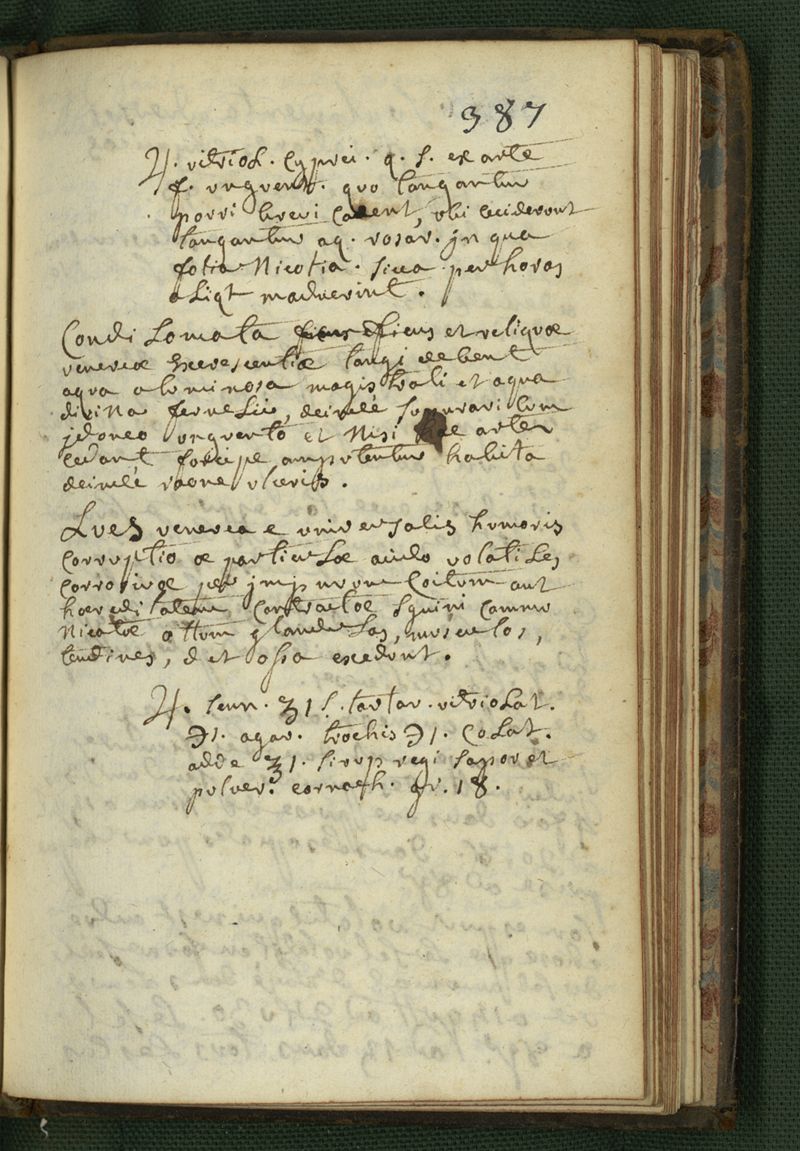 387
♃. vitriol. cyprei. q. s. ex arte
f. unguent. quo tangantur
porri brevi cadent, ubi ceciderunt
tangantur aq. rosar. jn qua
folia Nicotia. sicca per horas
aliqt maduerint.
Condilomata ficus et reliquæ
venereæ excrescentiæ tangi debent
aqua aluminosa magistrali et aqua
divina fernelii, deinde
jdoneo unguento et nisi arte
cedant forcipe amputentur habita
deinde raone ulceris.
Lues venerea e universalis humoris
corruptio a particulæ acido volatiles
corrosivæ per jmpurum coitum aut
hæreditatem contractæ
glandulas, musculos,
tendines, et ossa exedunt.
♃. senn. ʒ1 s. tartar. vitriolat.
℈1. agar. trochis ℈1. colat.
adde ʒ1. sirup regi sapor et
pulver. cornach. gr. 18.